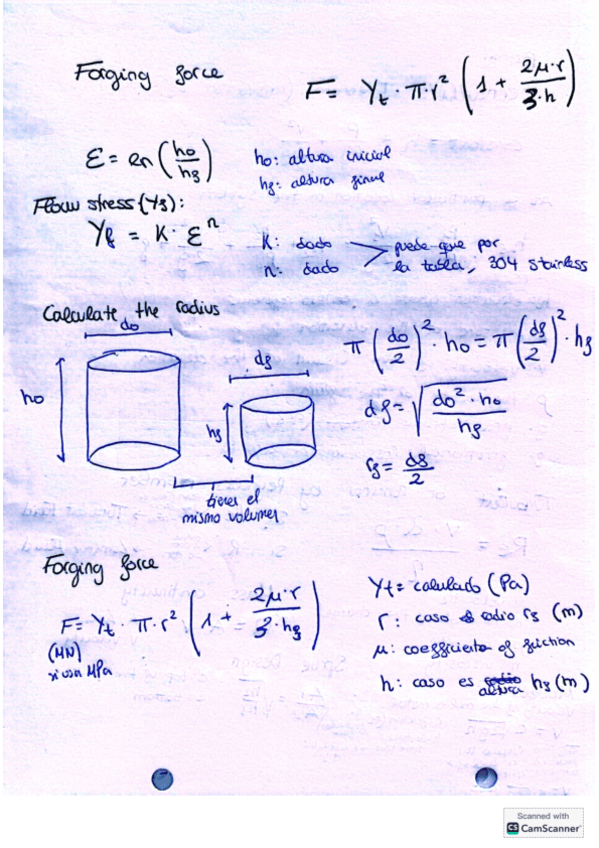 Forging force
F = Yf · π·r² (1 + 2μ·r / 3·h)
ε = ln (ho / hf)
ho: altura inicial
hf: altura final
Flow stress (Yf):
Yf = K · ε^n
K: dado
n: dado
puede que por
la tabla, 304 stainless
Calculate the radius
do
ho
df
hf
tienen el
mismo volumen
π (do / 2)² · ho = π (df / 2)² · hf
df = √(do² · ho / hf)
rf = df / 2
Forging force
F = Yf · π·r² (1 + 2μ·r / 3·hf)
(MN)
si usa MPa
Yf = calculado (Pa)
r: caso es radio rf (m)
μ: coefficiente of friction
h: caso es altura hf (m)
Scanned with
CS CamScanner